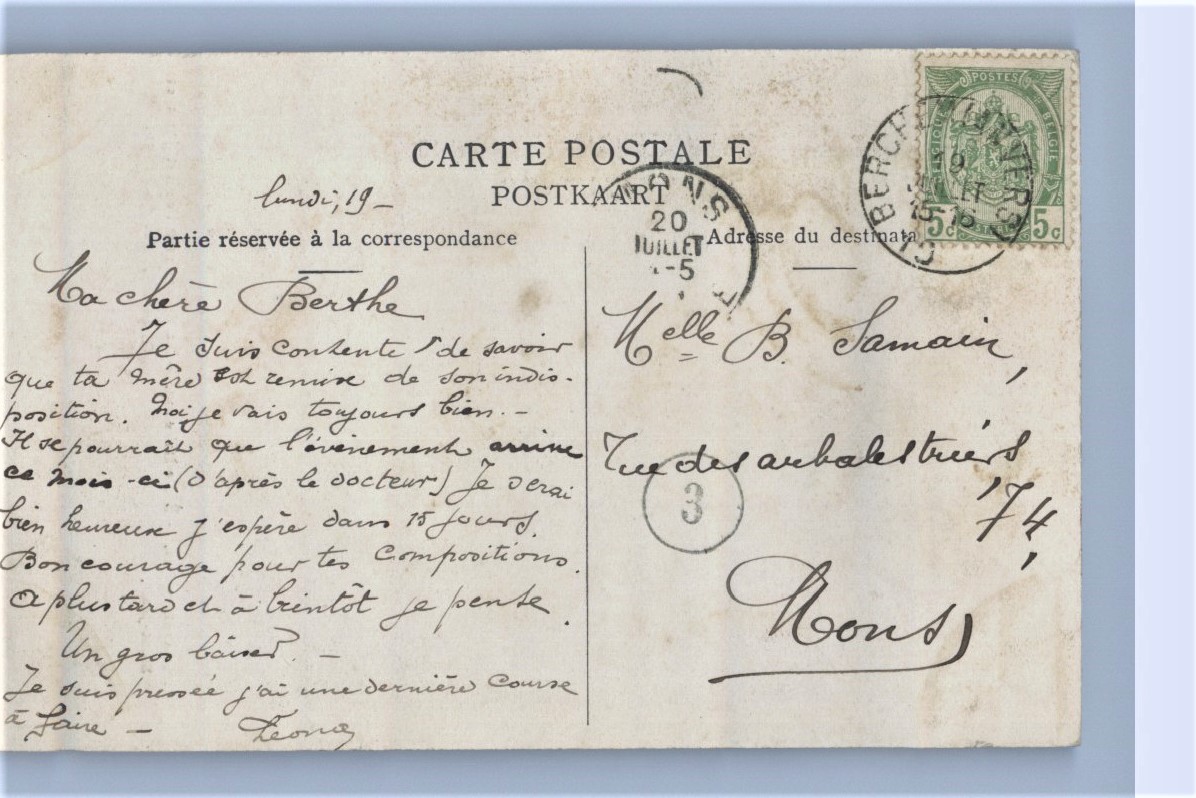 POSTES
BELGIQUE
BELGIE
5c 5c
BERCHEM (ANVERS)
JUILLET
15-16
CARTE POSTALE
POSTKAART
MONS
20
JUILLET
-5
lundi, 19 -
Partie réservée à la correspondance
Adresse du destinata
Ma chère Berthe
Je suis contente de savoir
que ta mère est remise de son indis-
position. Moi je vais toujours bien. -
Il se pourrait que l'évènement arrive
ce mois-ci (d'après le docteur) Je serai
bien heureuse j'espère dans 15 jours.
Bon courage pour tes compositions.
A plus tard et à bientôt je pense.
Un gros baiser. -
Je suis pressée j'ai une dernière course
à faire -
Melle B. Samain,
rue des arbalestriers
, 74,
3
Mons